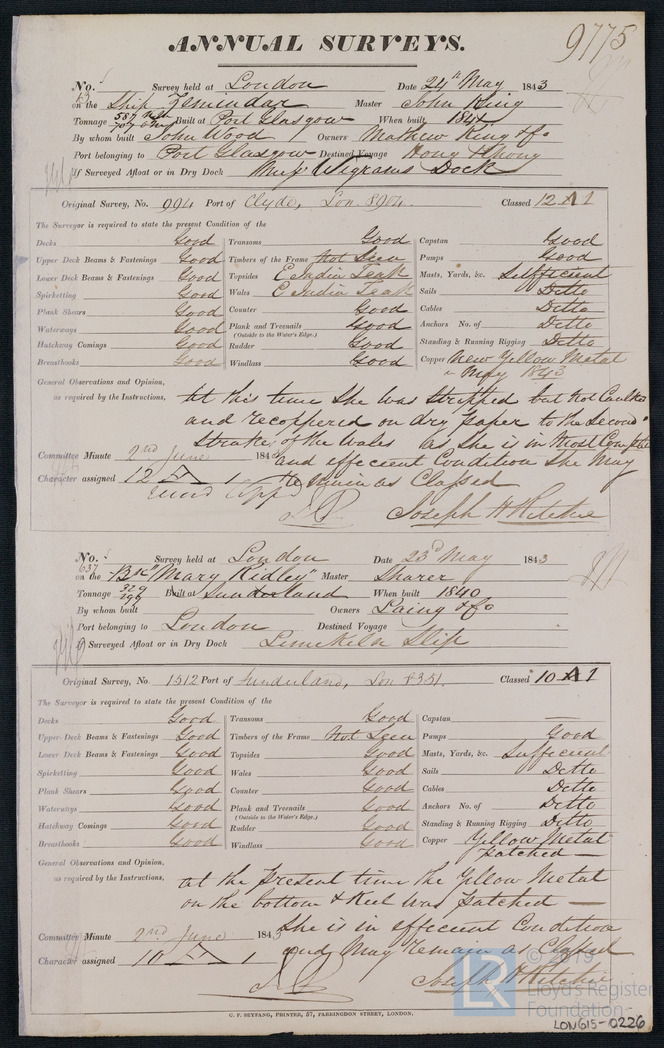 9775
ANNUAL SURVEYS.
No. Survey held at London Date 24th May 1843
on the Ship Zemindar Master John King
Tonnage 587 707 Built at Port Glasgow When built 1841
By whom built John Wood Owners Mathew King & Co
Port belonging to Port Glasgow Destined Voyage Hong Khong
If Surveyed Afloat or in Dry Dock Wigrams Dock
Original Survey, No. 994 Port of Clyde, Lon 8904. Classed 12 A 1
The Surveyor is required to state the present Condition of the
Decks Good Transoms Good Capstan Good
Upper Deck Beams & Fastenings Good Timbers of the Frame Not Seen Pumps Good
Lower Deck Beams & Fastenings Good Topsides E India Teak Masts, Yards, &c. Sufficient
Spirketting Good Wales E India Teak Sails Ditto
Plank Shears Good Counter Good Cables Ditto
Waterways Good Plank and Treenails Good Anchors No. of Ditto
(Outside to the Water's Edge.)
Hatchway Comings Good Rudder Good Standing & Running Rigging Ditto
Breasthooks Good Windlass Good Copper New Yellow Metal
May 1843
General Observations and Opinion,
as required by the Instructions,
At this time She was Stripped but not Caulked
and recoppered on dry paper to the Second
Strake of the Wales as She is in Most Complete
Committee Minute 2nd June 184
and effecient Condition She May
Character assigned 12 A 1
remain as Classed
Joseph H Ritchie
No. 637 Survey held at London Date 23d May 1843
on the Bk "Mary Ridley" Master Sharer
Tonnage 329 296 Built at Sunderland When built 1840
By whom built Owners Laing & Co
Port belonging to London Destined Voyage
If Surveyed Afloat or in Dry Dock Limekiln Slip
Original Survey, No. 1512 Port of Sunderland, Lon 8351. Classed 10 A 1
The Surveyor is required to state the present Condition of the
Decks Good Transoms Good Capstan —
Upper Deck Beams & Fastenings Good Timbers of the Frame Not Seen Pumps Good
Lower Deck Beams & Fastenings Good Topsides Good Masts, Yards, &c. Sufficient
Spirketting Good Wales Good Sails Ditto
Plank Shears Good Counter Good Cables Ditto
Waterways Good Plank and Treenails Good Anchors No. of Ditto
(Outside to the Water's Edge.)
Hatchway Comings Good Rudder Good Standing & Running Rigging Ditto
Breasthooks Good Windlass Good Copper Yellow Metal
patched —
General Observations and Opinion,
as required by the Instructions,
at the present time the Yellow Metal
on the bottom & Keel was patched —
She is in effecient Condition
Committee Minute 2nd June 1843
and May remain as Classed
Character assigned 10 A 1
Joseph H Ritchie
C. F. SEYFANG, PRINTER, 57, FARRINGDON STREET, LONDON.
LR © 2019
Lloyd's Register
Foundation
LON615-0226